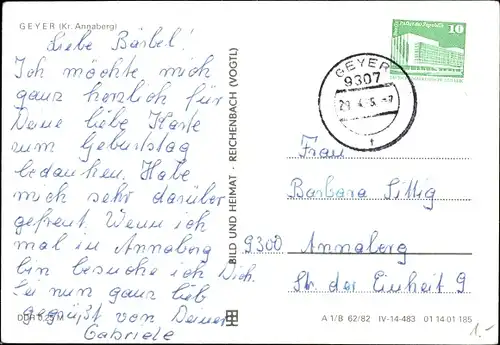 GEYER (Kr. Annaberg)
Liebe Bärbel!
Ich möchte mich
ganz herzlich für
Deine liebe Karte
zum Geburtstag
bedanken. Habe
mich sehr darüber
gefreut. Wenn ich
mal in Annaberg
bin besuche ich Dich.
Sei nun ganz lieb
gegrüßt von Deiner
Gabriele
DDR 0,25 M
BILD UND HEIMAT · REICHENBACH (VOGTL)
10
GEYER
9307
Frau
Barbara Sittig
9300 Annaberg
Str. der Einheit 9
A 1/B 62/82 IV-14-483 01 14 01 185
1.-